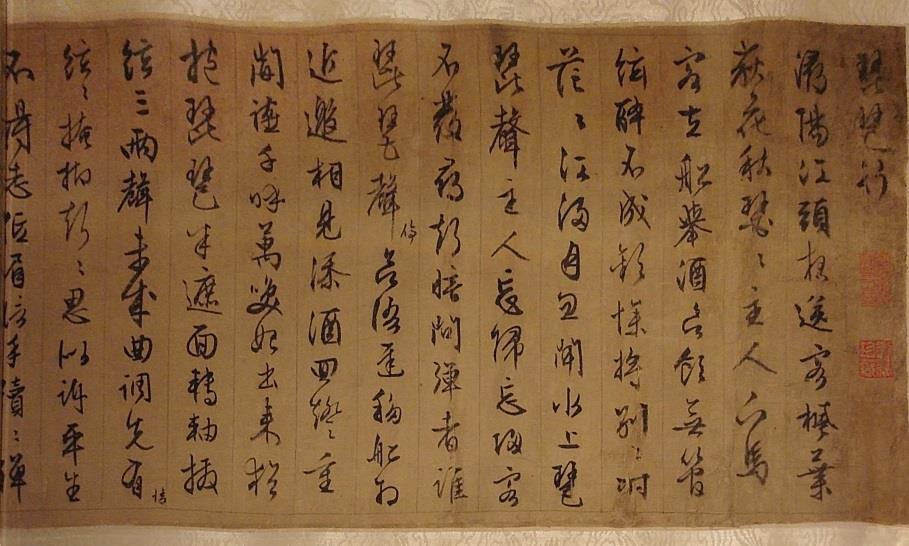 琵琶行
潯陽江頭夜送客楓葉
荻花秋瑟〻主人下馬
客在船舉酒欲飲無管
絃醉不成歡慘將別〻時
茫〻江浸月忽聞水上琶
琵聲主人忘歸忘返客
不發尋聲暗問彈者誰
琵琶聲停欲語遲移船相
近邀相見添酒回燈〻重
開讌千呼萬喚始出來猶
抱琵琶半遮面轉軸撥
絃三兩聲未成曲調先有情
絃〻掩抑聲〻思似訴平生
不得志低眉信手續〻彈